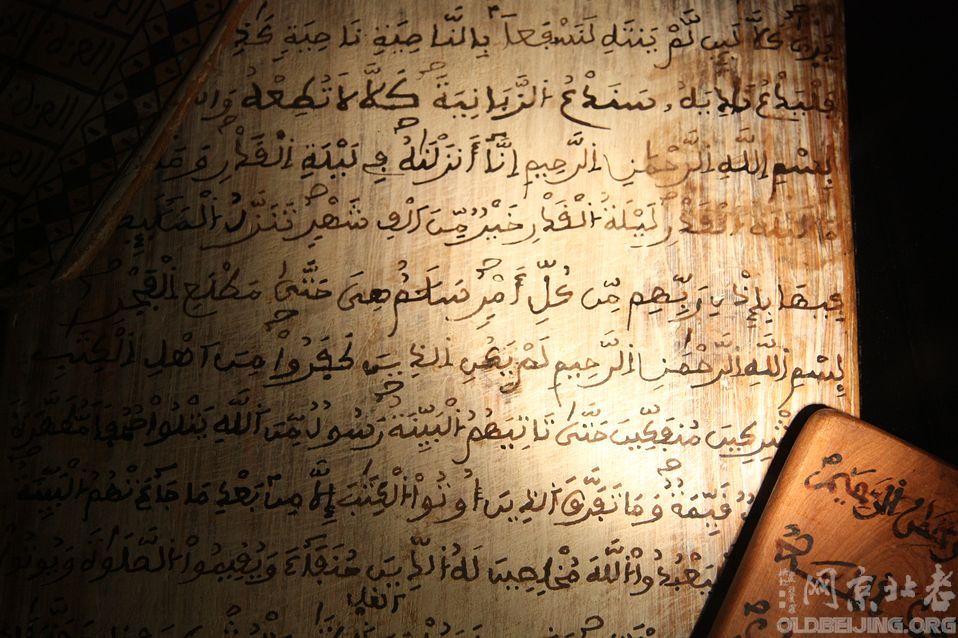 يرى كلا لين لم ينته لنسفعا بالناصية ناصية
فليدع ناديه سندع الزبانية كلا لا تطعه
بسم الله الرحمن الرحيم إنا أنزلنه في ليلة القدر وما
ليلة القدر ليلة القدر خير من الف شهر تنزل
فيها بإذن ربهم من كل أمر سلم هي حتى مطلع الفجر
بسم الله الرحمن الرحيم لم يكن الذين كفروا من اهل الكتب
منفكين حتى تاتيهم البينة رسول من الله يتلوا صحفا مطهرة
قيمة وما تفرق الذين أوتوا الكتب إلا من بعد ما جاءتهم البينة
ليعبدوا الله مخلصين له الدين حنفاء ويقيموا الصلوة ويوتوا
网京北老
OLDBEIJING.ORG